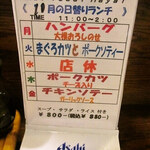 10月の日替りランチ
TIME 11:00～2:00
月 ハンバーグ
大根おろしのせ
火 まぐろカツとポークソテー
水 店休
木 ポークカツ
チーズ入り
金 チキンソテー
ガーリックソース
スープ・サラダ・ライス付き
Asahi